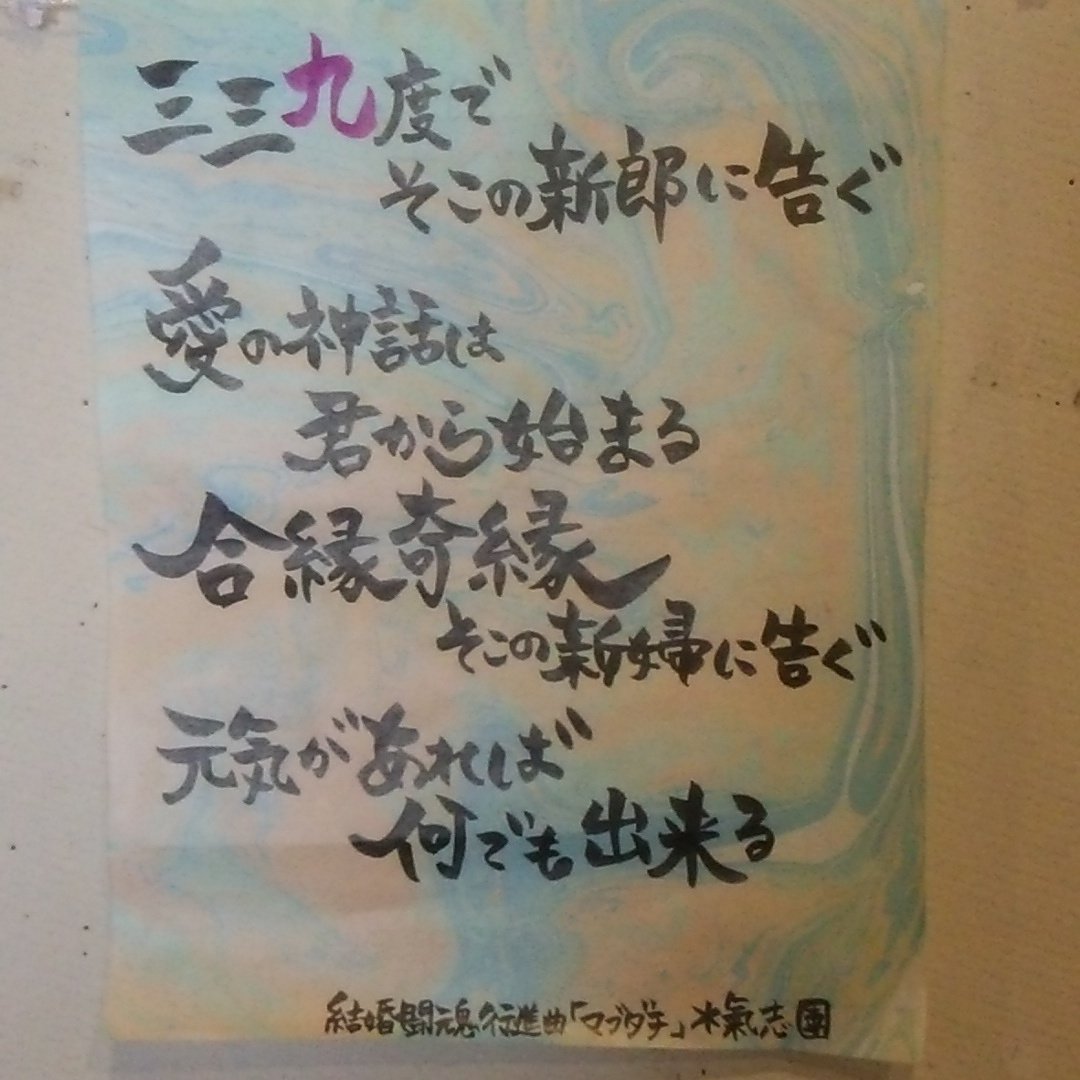 三三九度で
そこの新郎に告ぐ
愛の神話は
君から始まる
合縁奇縁
そこの新婦に告ぐ
元気があれば
何でも出来る
結婚闘魂行進曲「マブダチ」氣志團